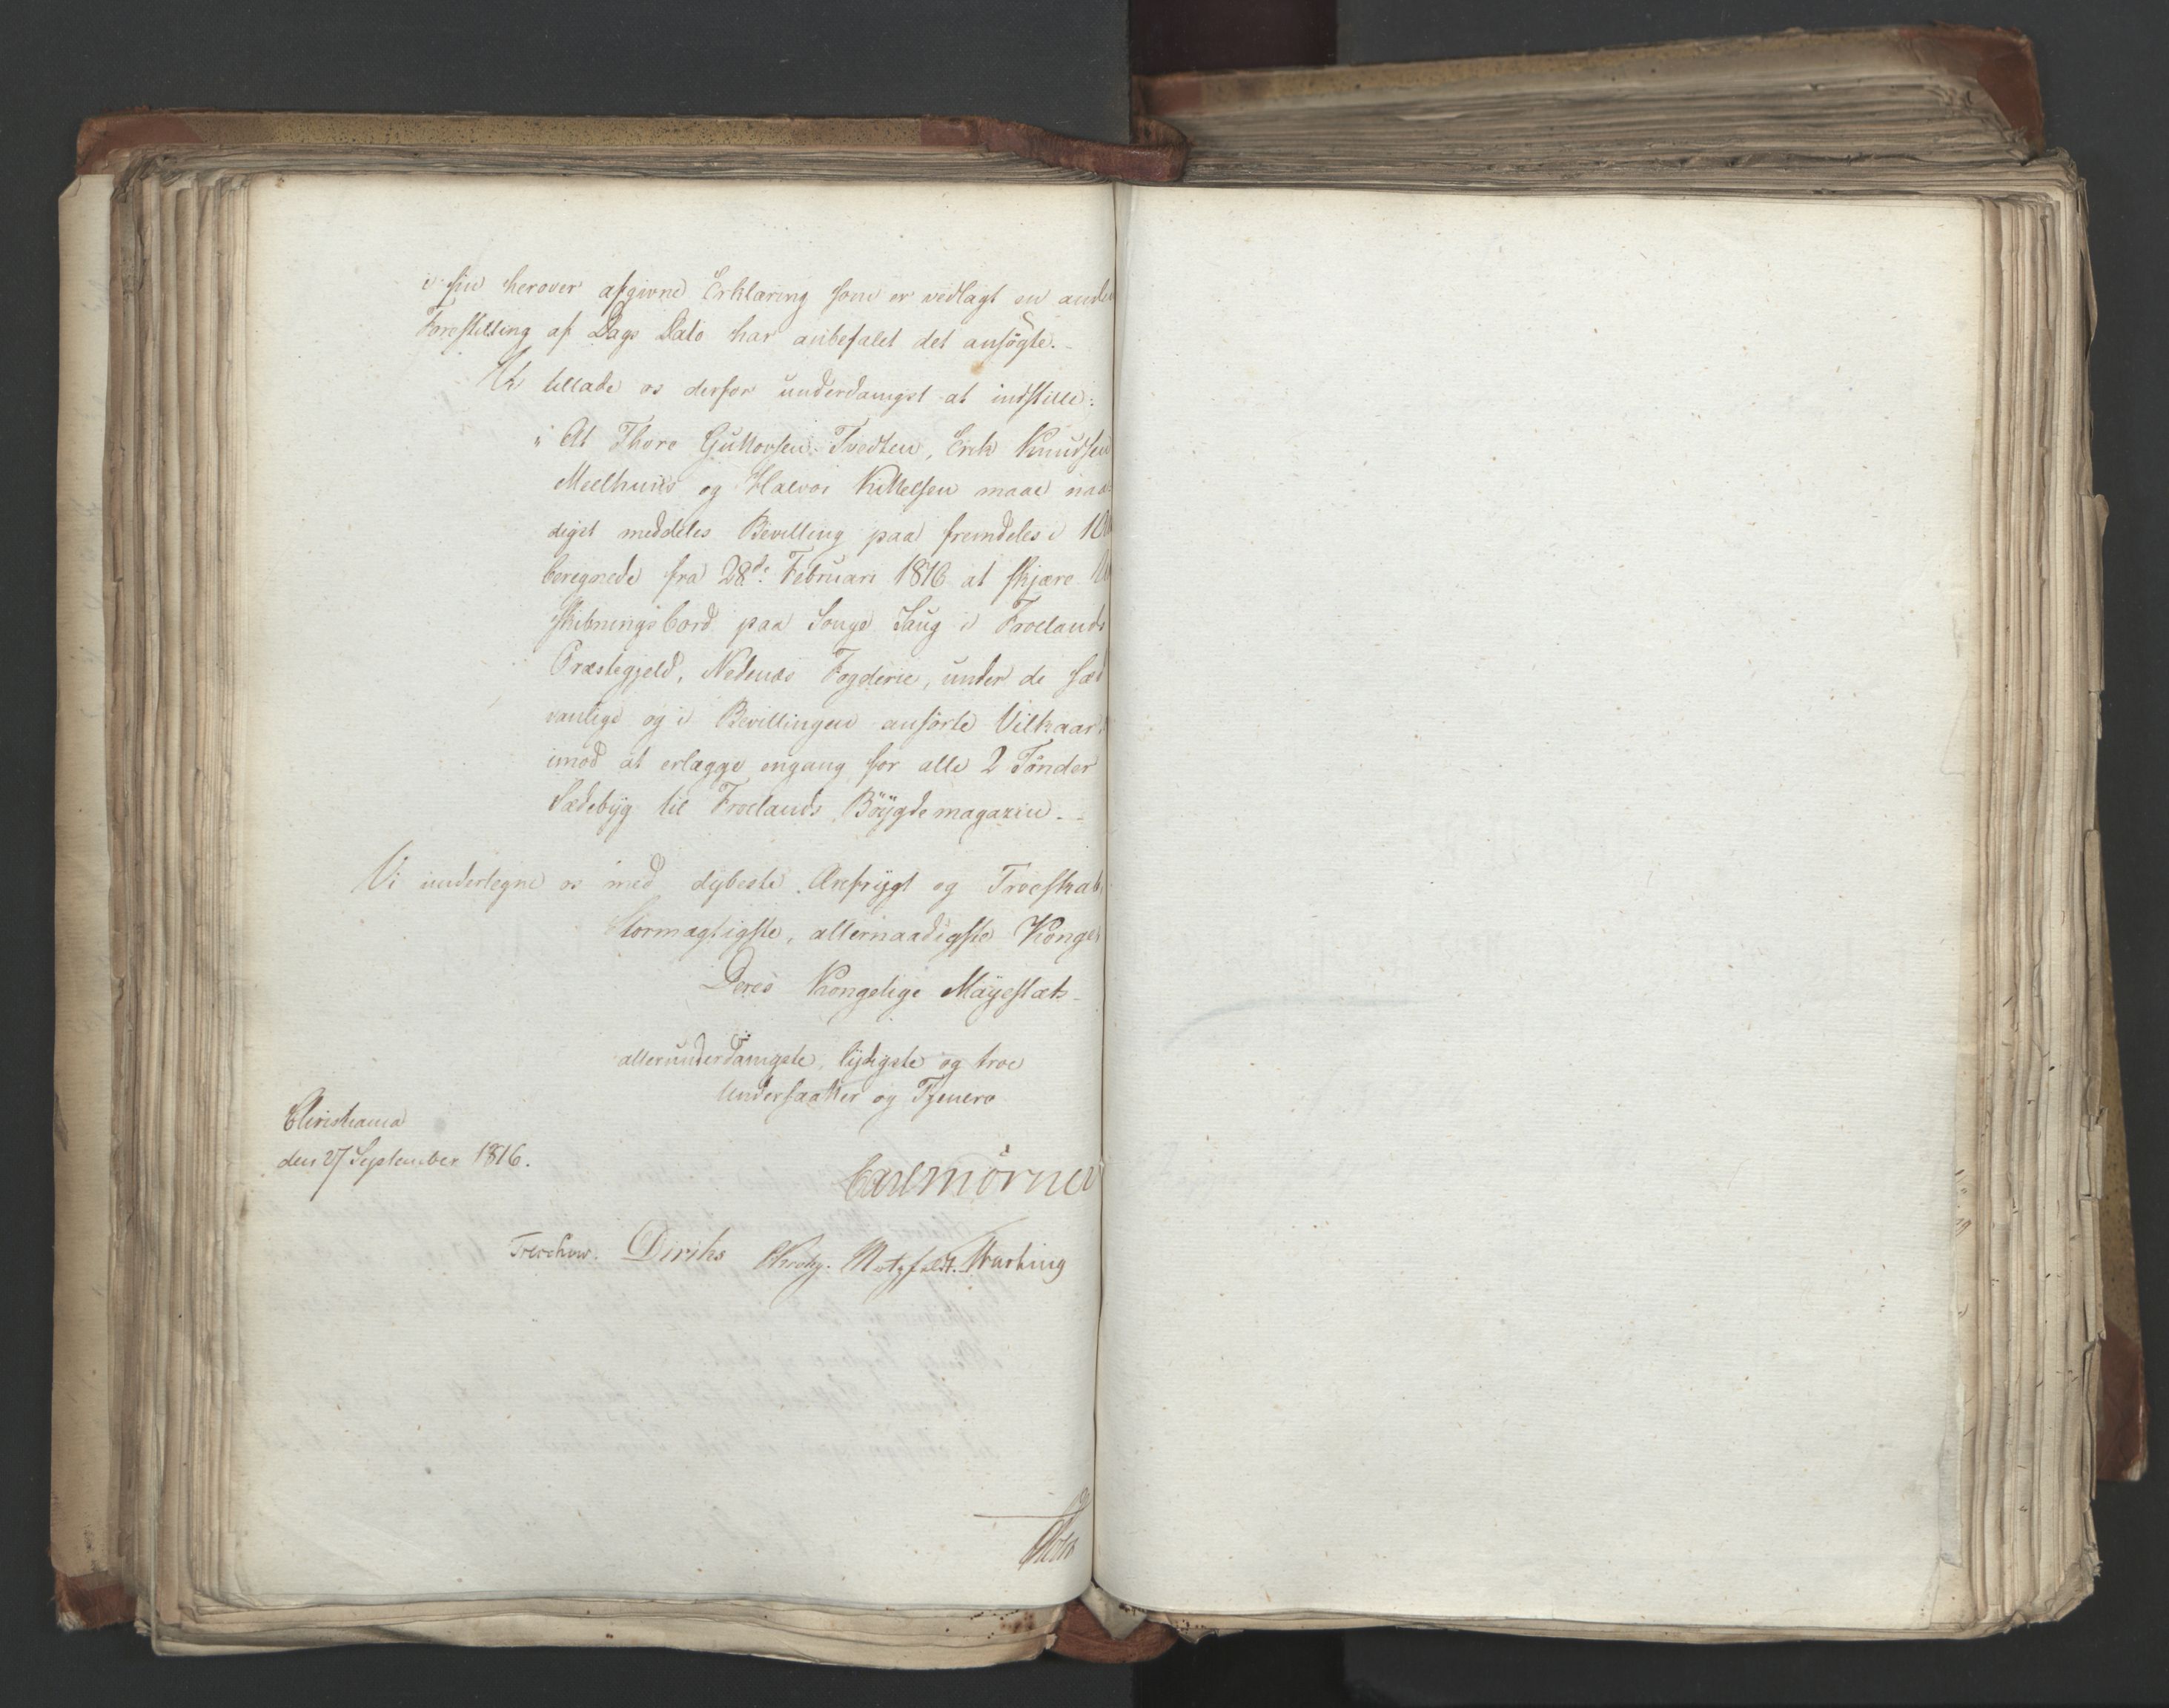 i sin herover afgivne Erklæring som er vedlagt en anden
Forestilling af Dags Dato har anbefalet det ansøgte. -
Vi tillade os derfor underdanigst at indstille:
"At Thore Guttorsen Tvedten, Erik Knudsen
Meelhuus og Halvor Kittelsen maae naa-
digst meddeles Bevilling paa fremdeles i 10
beregnede fra 28de Februari 1816 at skjære
skibningsbord paa Songe Saug i Froelands
Præstegjeld, Nedenæs Fogderie, under de sæd
vanlige og i Bevillingen anførte Vilkaar,
imod at erlægge engang for alle 2 Tønder
Sædebyg til Froelands Böygdemagazin. -
Vi undertegne os med dybeste Ærefrygt og Troeskab,
Stormægtigste, allernaadigste Konge,
Deres Kongelige Mayestæts
allerunderdanigste, lydigste og troe
Undersaatter og Tjenere
Christiania
den 27 September 1816.
Carl Mörner
Treschow. Diriks Krohg. Motzfeldt.